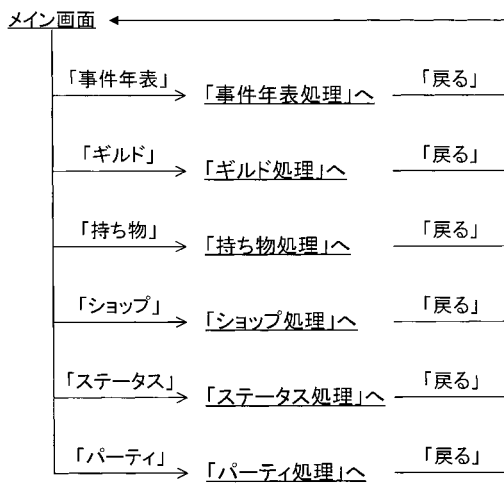 メイン画面
「事件年表」 「事件年表処理」へ 「戻る」
「ギルド」 「ギルド処理」へ 「戻る」
「持ち物」 「持ち物処理」へ 「戻る」
「ショップ」 「ショップ処理」へ 「戻る」
「ステータス」 「ステータス処理」へ 「戻る」
「パーティ」 「パーティ処理」へ 「戻る」